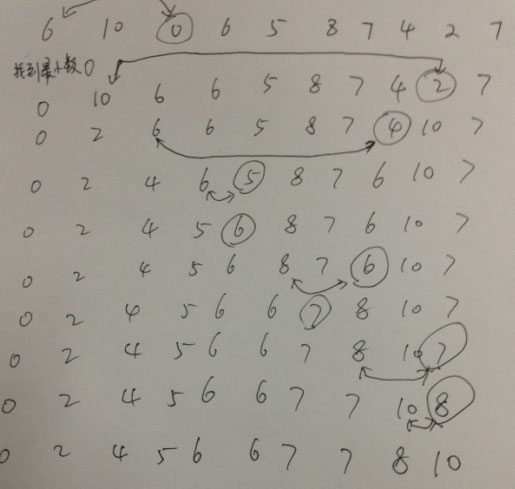 6 10 0 6 5 8 7 4 2 7
找到最小数0
0 10 6 6 5 8 7 4 2 7
0 2 6 6 5 8 7 4 10 7
0 2 4 6 5 8 7 6 10 7
0 2 4 5 6 8 7 6 10 7
0 2 4 5 6 8 7 6 10 7
0 2 4 5 6 6 7 8 10 7
0 2 4 5 6 6 7 8 10 7
0 2 4 5 6 6 7 7 10 8
0 2 4 5 6 6 7 7 8 10